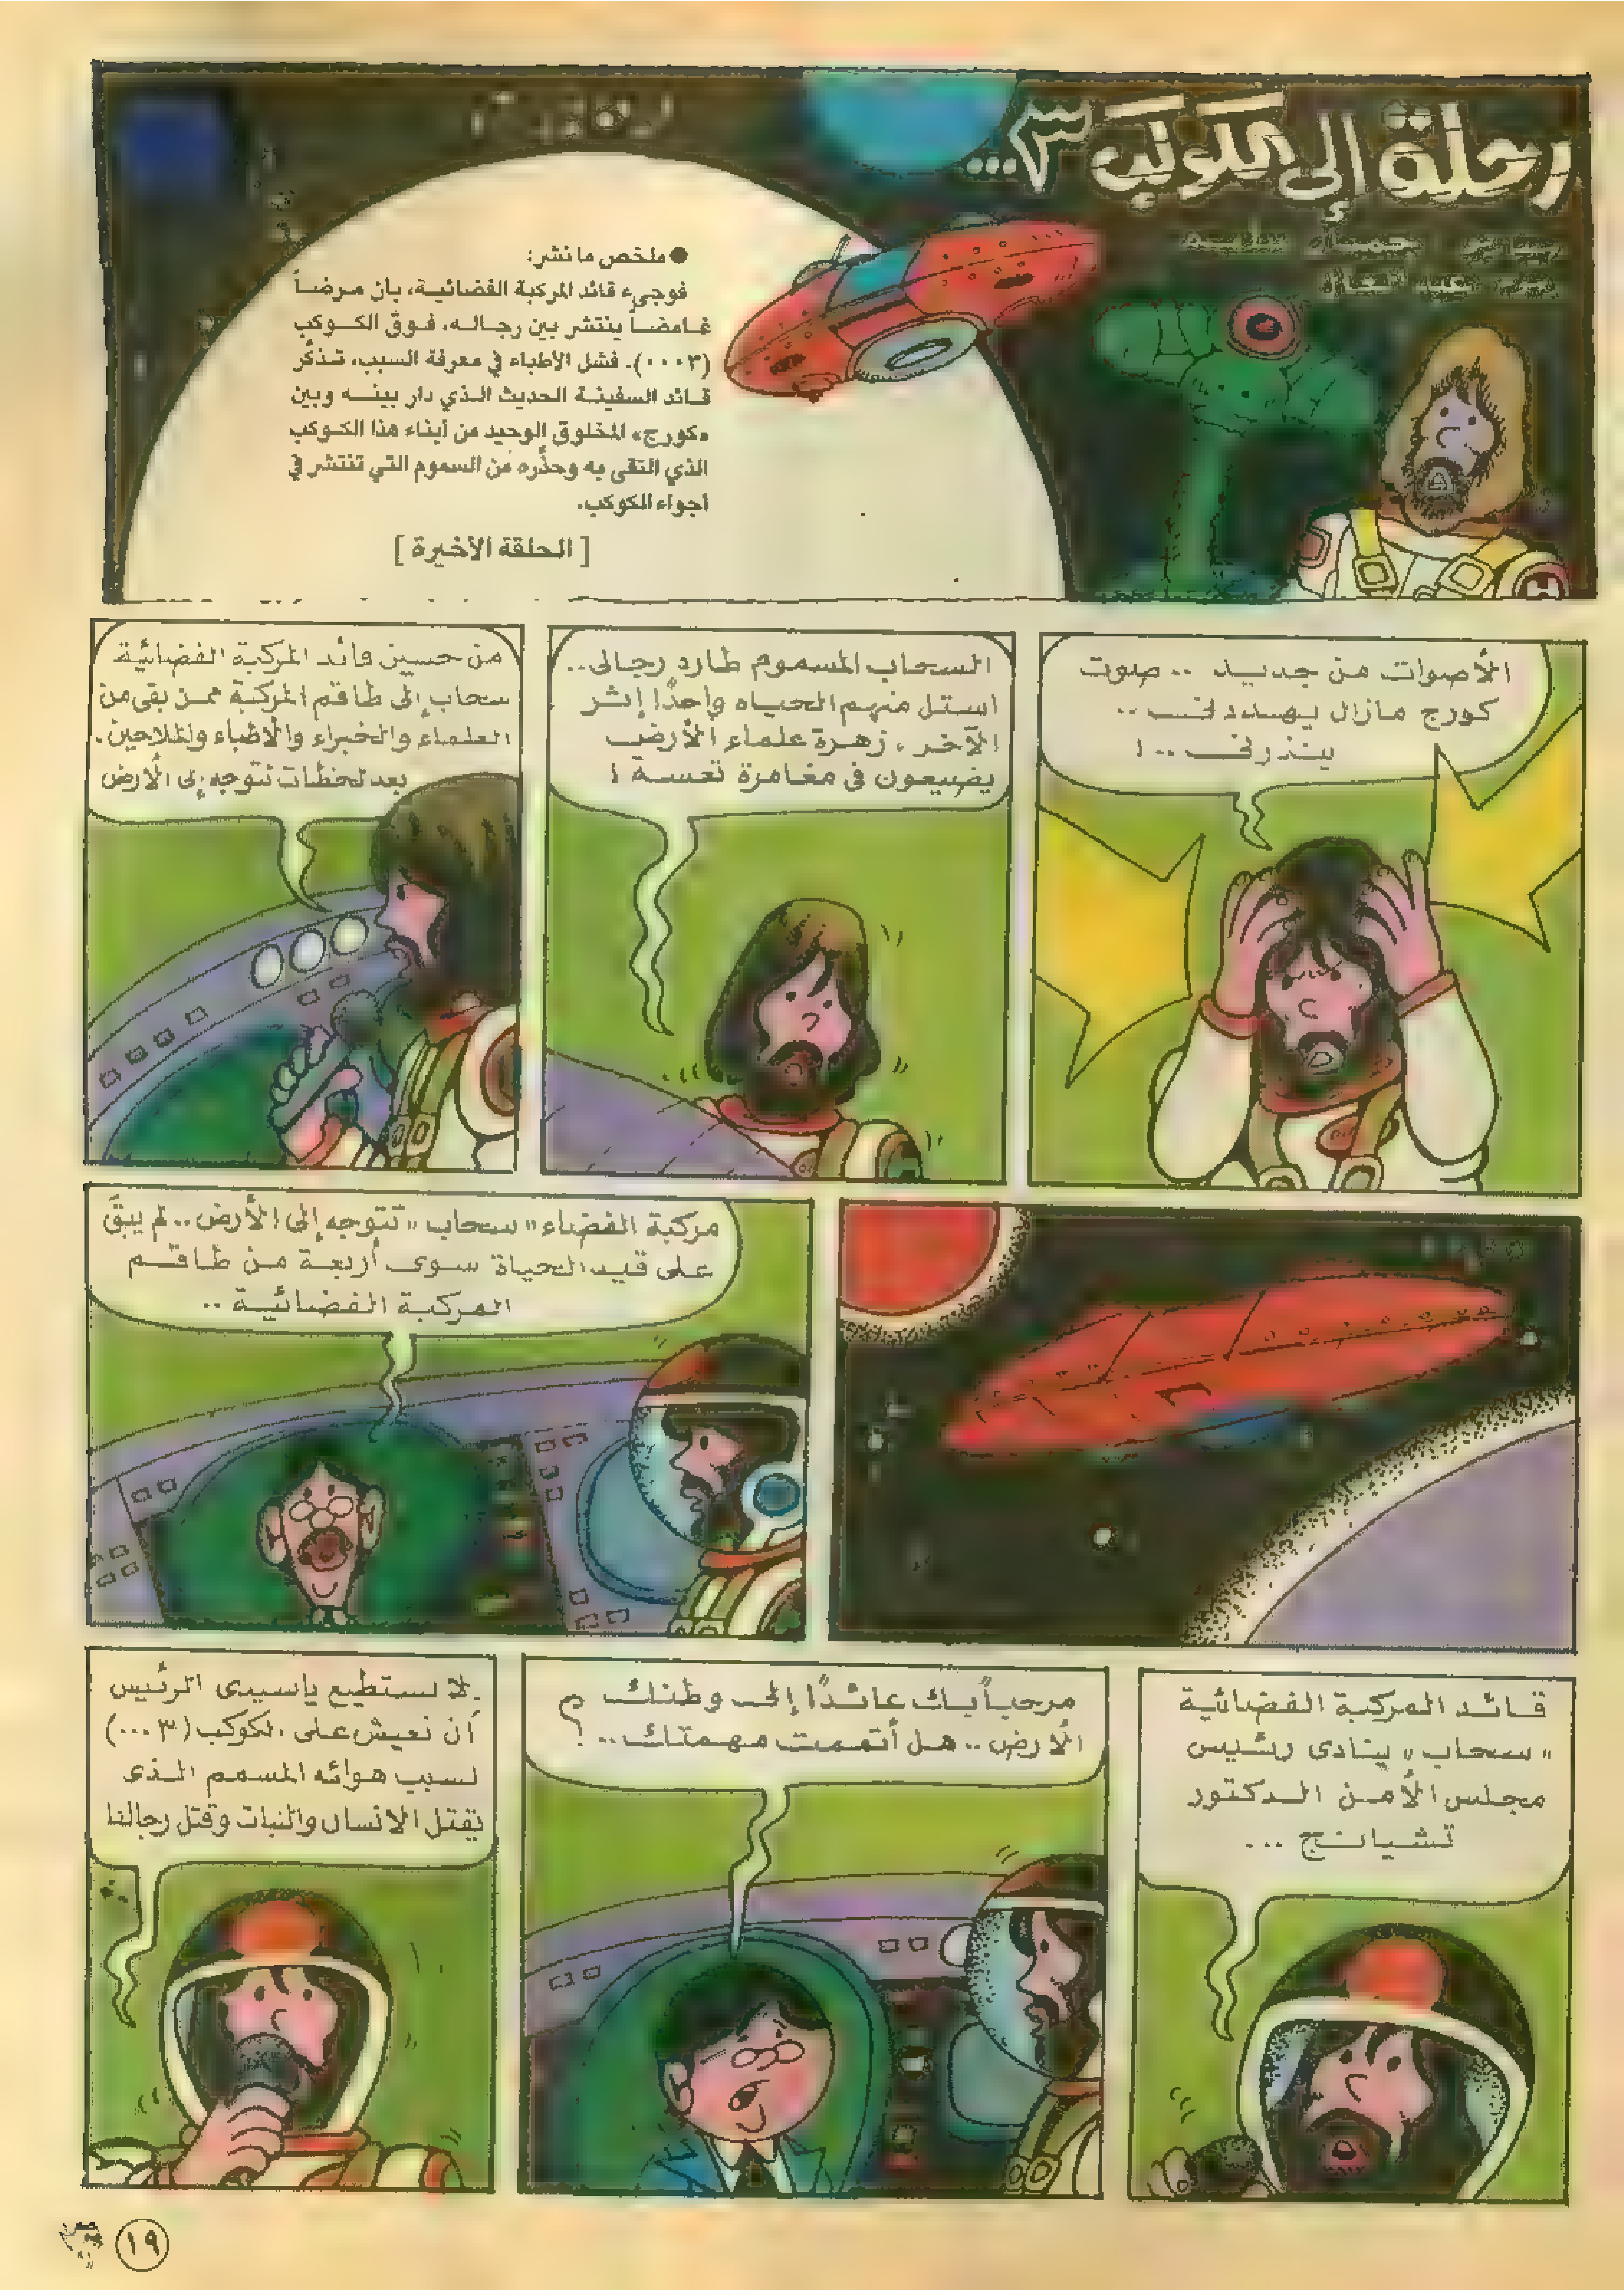 رحلة إلى الكوكب ٣...
● ملخص ما نشر:
فوجىء قائد المركبة الفضائية، بأن مرضاً
غامضاً ينتشر بين رجاله، فوق الكوكب
(٣٠٠٠). فشل الأطباء في معرفة السبب، تذكّر
قائد السفينة الحديث الذي دار بينه وبين
«كورج» المخلوق الوحيد من أبناء هذا الكوكب
الذي التقى به وحذّره من السموم التي تنتشر في
أجواء الكوكب.
[ الحلقة الأخيرة ]
الأصوات من جديد .. صوت
كورج مازال يهددنى ..
ينذرنى .. !
السحاب المسموم طارد رجالى ..
استل منهم الحياه واحدًا إثر
الآخر ، زهرة علماء الأرض
يضيعون فى مغامرة تعسة !
من حسين قائد المركبة الفضائية
سحاب إلى طاقم المركبة ممن بقى من
العلماء والخبراء والأطباء والملاحين .
بعد لحظات نتوجه إلى الأرض
مركبة الفضاء "سحاب" تتوجه إلى الأرض .. لم يبقَ
على قيد الحياة سوى أربعة من طاقم
المركبة الفضائية ..
قائد المركبة الفضائية
"سحاب" ينادى رئيس
مجلس الأمن الدكتور
تشيانج ...
مرحباً بك عائدًا إلى وطنك
الأرض .. هل أتممت مهمتك .. ؟
لا نستطيع ياسيدى الرئيس
أن نعيش على الكوكب (٣٠٠٠)
بسبب هوائه المسمم الذى
يقتل الانسان والنبات وقتل رجالنا
١٩